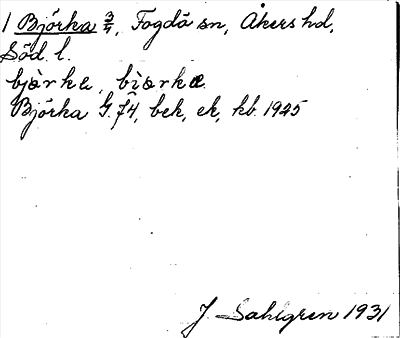 1 Björka 3/4, Fogdö sn, Åkers hd,
Söd. l.
bjàrka, bìærkæ
Björka G. 74, bek, ek, kb. 1925
J Sahlgren 1931